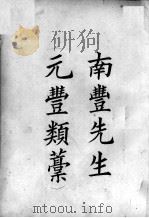 南豐先生
元豐類藁
mtoou.info